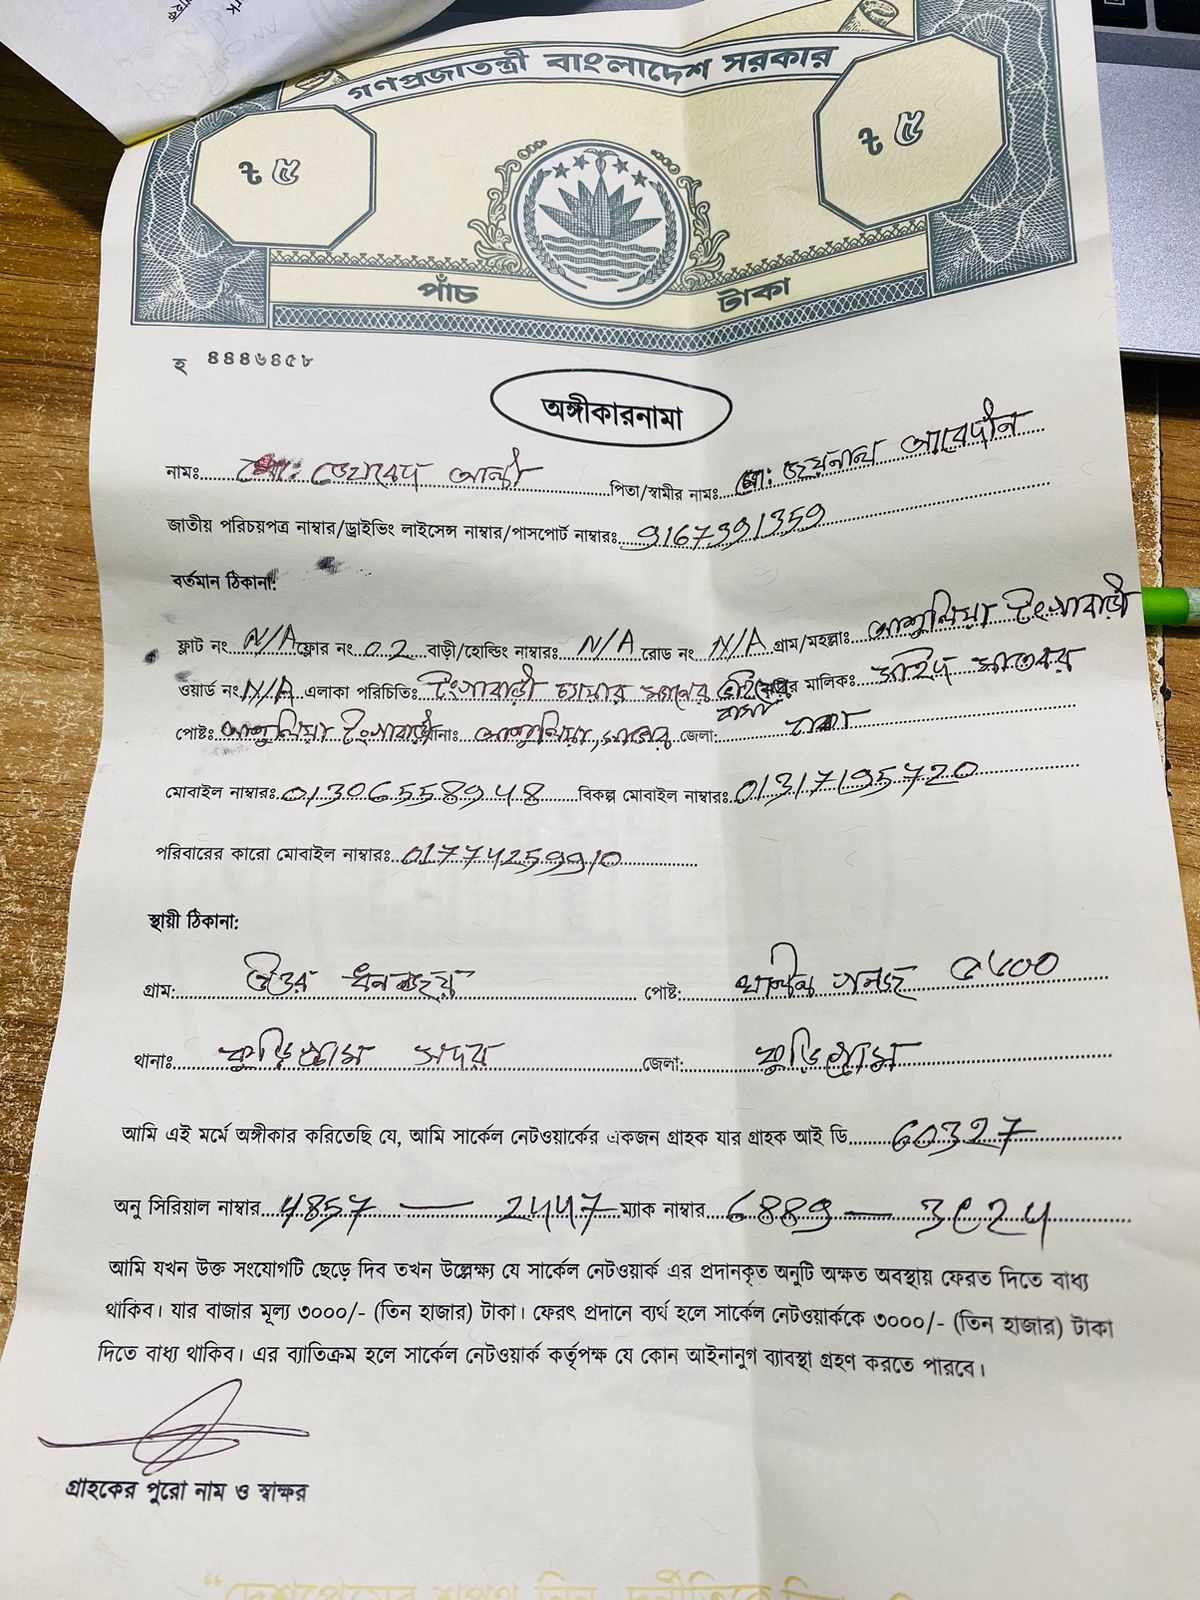 গণপ্রজাতন্ত্রী বাংলাদেশ সরকার
৳ ৫
৳ ৫
পাঁচ টাকা
হ ৪৪৪৬৪৫৮
অঙ্গীকারনামা
নামঃ মো: জোবেদ আলী পিতা/স্বামীর নামঃ মো: জয়নাল আবেদীন
জাতীয় পরিচয়পত্র নাম্বার/ড্রাইভিং লাইসেন্স নাম্বার/পাসপোর্ট নাম্বারঃ 9167391359
বর্তমান ঠিকানা:
ফ্লাট নং N/A ফ্লোর নং 02 বাড়ী/হোল্ডিং নাম্বারঃ N/A রোড নং N/A গ্রাম/মহল্লাঃ আশুলিয়া টংগাবাড়ী
ওয়ার্ড নং N/A এলাকা পরিচিতিঃ টংগাবাড়ী মালিকঃ
বাসা
পোষ্টঃ আশুলিয়া টংগাবাড়ী থানাঃ আশুলিয়া, সাভার জেলা: ঢাকা
মোবাইল নাম্বারঃ 01306558948 বিকল্প মোবাইল নাম্বারঃ 01317195720
পরিবারের কারো মোবাইল নাম্বারঃ 01774259910
স্থায়ী ঠিকানা:
গ্রাম: উত্তর পোষ্ট: ৫৬০০
থানাঃ কুড়িগ্রাম সদর জেলা: কুড়িগ্রাম
আমি এই মর্মে অঙ্গীকার করিতেছি যে, আমি সার্কেল নেটওয়ার্কের একজন গ্রাহক যার গ্রাহক আই ডি 60327
অনু সিরিয়াল নাম্বার 4857 — 2447 ম্যাক নাম্বার 6889 — 3C24
আমি যখন উক্ত সংযোগটি ছেড়ে দিব তখন উল্লেক্ষ্য যে সার্কেল নেটওয়ার্ক এর প্রদানকৃত অনুটি অক্ষত অবস্থায় ফেরত দিতে বাধ্য
থাকিব। যার বাজার মূল্য ৩০০০/- (তিন হাজার) টাকা। ফেরৎ প্রদানে ব্যর্থ হলে সার্কেল নেটওয়ার্ককে ৩০০০/- (তিন হাজার) টাকা
দিতে বাধ্য থাকিব। এর ব্যাতিক্রম হলে সার্কেল নেটওয়ার্ক কর্তৃপক্ষ যে কোন আইনানুগ ব্যাবস্থা গ্রহণ করতে পারবে।
গ্রাহকের পুরো নাম ও স্বাক্ষর